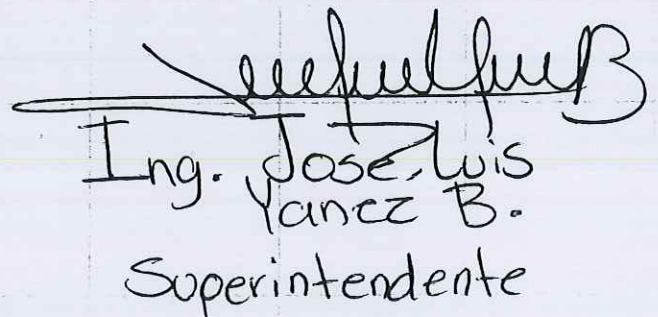 Ing. José Luis
Yanez B.
Superintendente